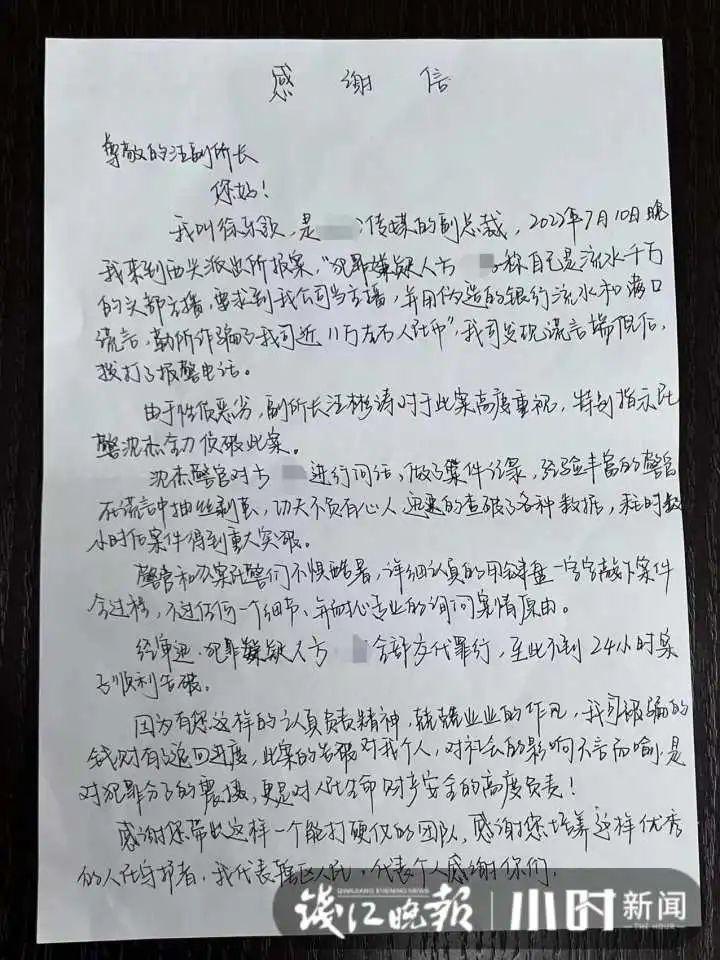 感谢信
尊敬的汪副所长
您好！
我叫徐乐钦，是 传媒的副总裁，2022年7月10日晚
我来到西兴派出所报案，“犯罪嫌疑人方 称自己是流水千万
的头部主播，要求到我公司当主播，并用伪造的银行流水和满口
谎言，诈骗了我司近11万左右人民币”，我司发现谎言端倪后，
拨打了报警电话。
由于性质恶劣，副所长汪彬涛对于此案高度重视，特别指示民
警沈杰全力侦破此案。
沈杰警官对方 进行问话，做了案件记录，经验丰富的警官
在谎言中抽丝剥茧，功夫不负有心人，迅速的查破了各种数据，耗时数
小时后案件得到重大突破。
警官和办案民警们不惧酷暑，详细认真的用键盘一字字敲下案件
全过程，不过任何一个细节、并耐心专业的询问案情原由。
经审迅，犯罪嫌疑人方 全部交代罪行，至此不到24小时案
子顺利告破。
因为有您这样的认真负责精神，兢兢业业的作风，我司被骗的
钱财有了追回进度，此案的告破对我个人，对社会的影响不言而喻，是
对犯罪分子的震慑，更是对人民生命财产安全的高度负责！
感谢您带出这样一个能打硬仗的团队，感谢您培养这样优秀
的人民守护者，我代表辖区人民，代表个人感谢你们，
QIANJIANG EVENING NEWS
钱江晚报
小时新闻
THE HOUR